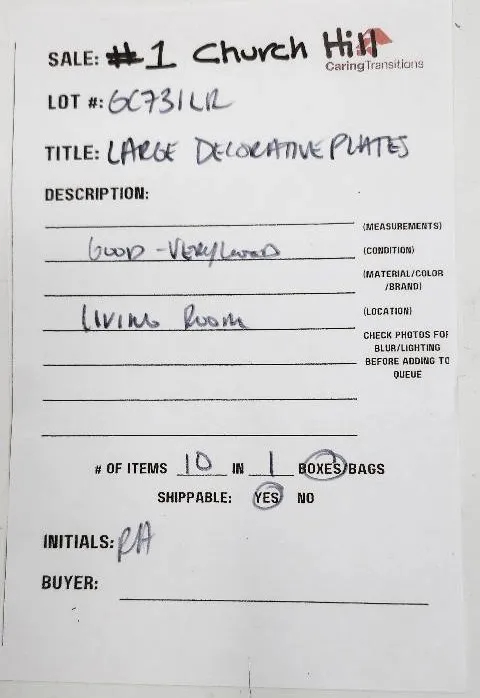 SALE: #1 Church Hill
CaringTransitions
LOT #: GC731LR
TITLE: LARGE DECORATIVE PLATES
DESCRIPTION:
(MEASUREMENTS)
GOOD - VERY GOOD (CONDITION)
(MATERIAL/COLOR
/BRAND)
LIVING ROOM (LOCATION)
CHECK PHOTOS FOR
BLUR/LIGHTING
BEFORE ADDING TO
QUEUE
# OF ITEMS 10 IN 1 BOXES/BAGS
SHIPPABLE: YES NO
INITIALS: RA
BUYER: